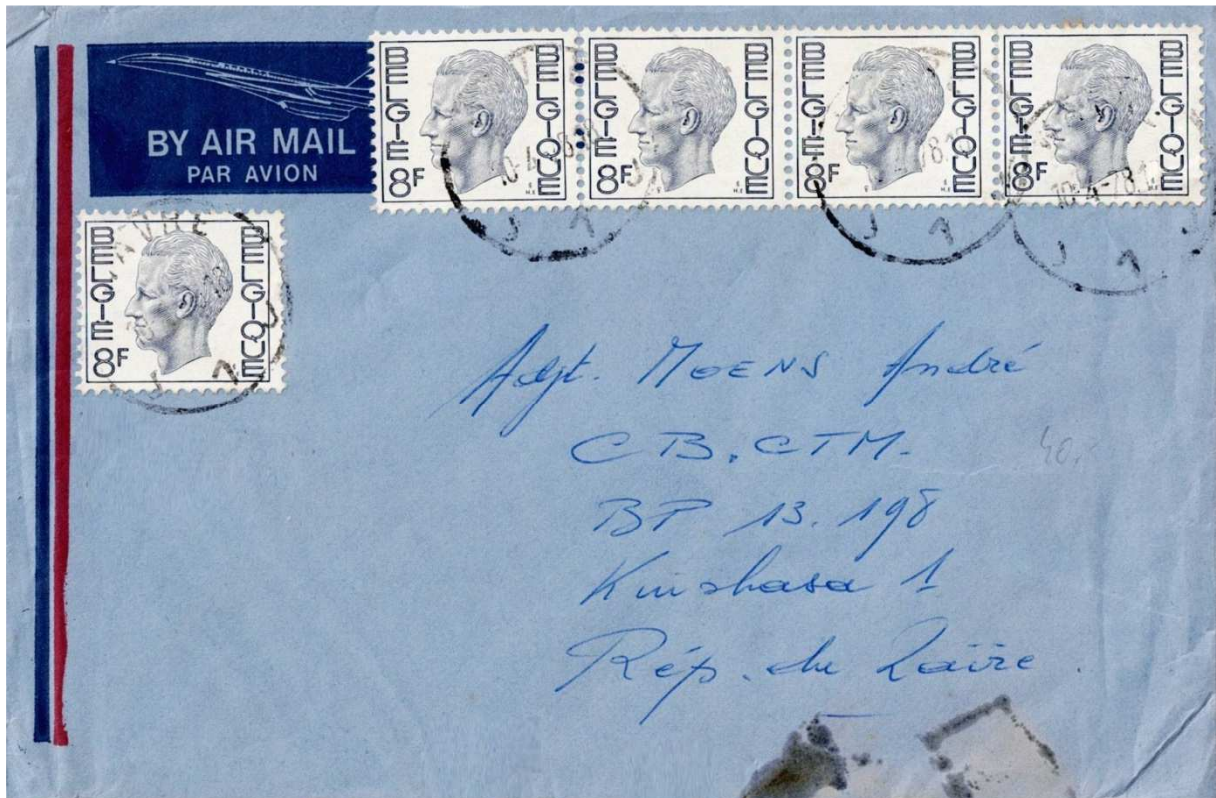 BY AIR MAIL
PAR AVION
BELGIE BELGIQUE 8F
BELGIE BELGIQUE 8F
BELGIE BELGIQUE 8F
BELGIE BELGIQUE 8F
BELGIE BELGIQUE 8F
Adjt. MOENS André
CB.CTM.
40.-
BP 13.198
Kinshasa 1
Rép. du Zaïre.